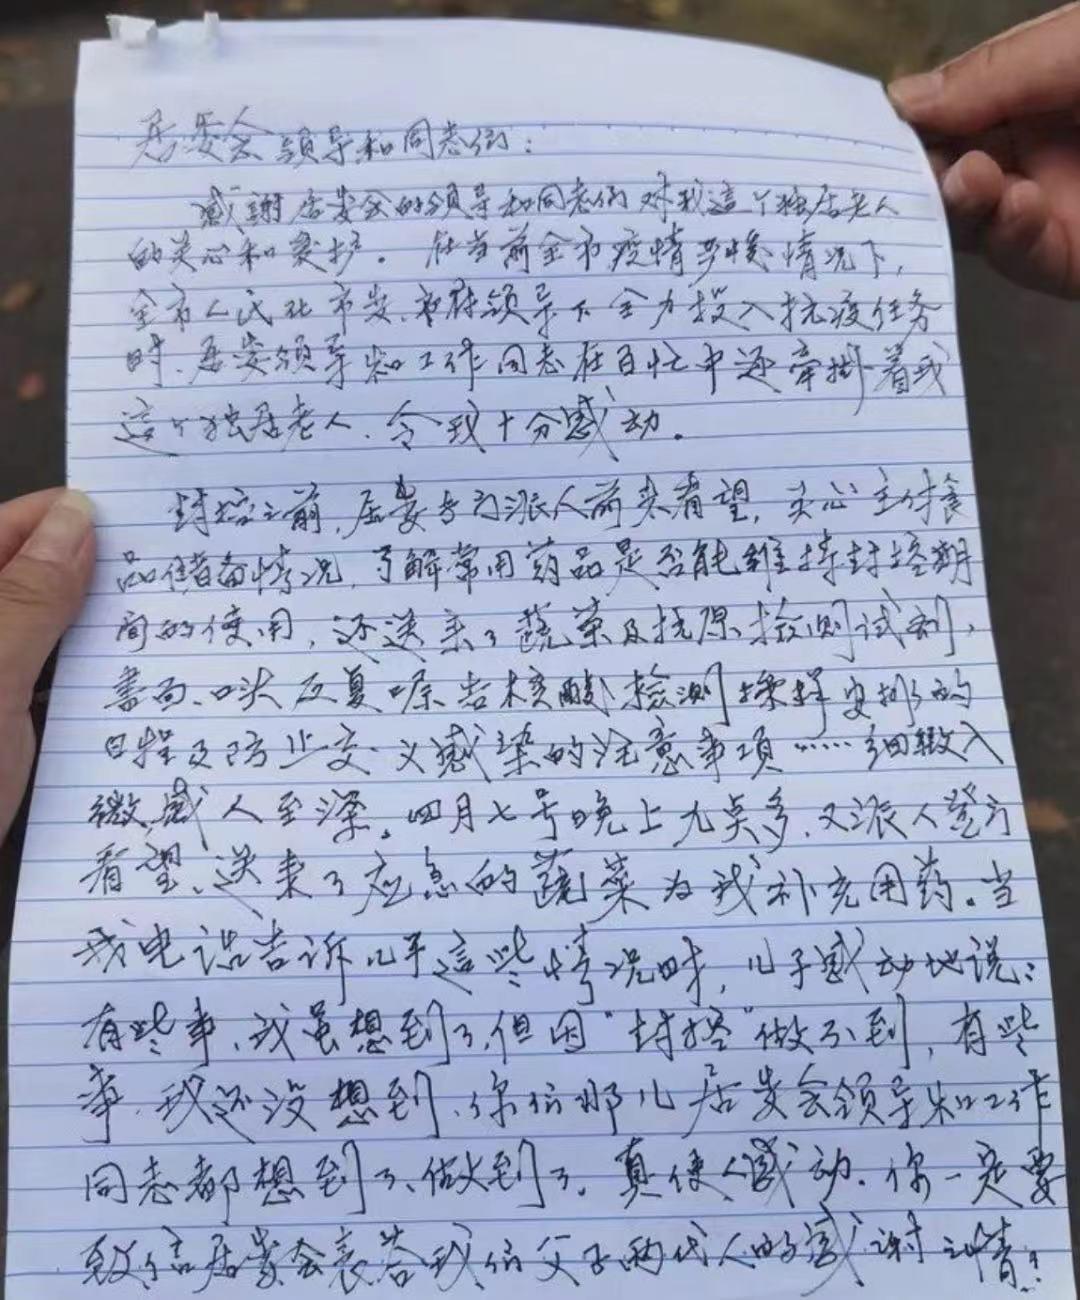 居委会领导和同志们：
感謝居委会的领导和同志们对我這个独居老人
的关心和爱护。在当前全市疫情严峻情况下，
全市人民在市委、市府领导下全力投入抗疫任务
时、居委领导和工作同志在百忙中还牵掛着我
這个独居老人、令我十分感动。
封控之前，居委专门派人前来看望，关心主付食
品储备情况，了解常用药品是否能维持封控期
间的使用，还送来了蔬菜及抗原检测试剂，
書面、口头反复嘱告核酸检测採样安排的
日程及防止交义感染的注意事项……细致入
微，感人至深。四月七号晚上九点多，又派人登门
看望、送来了应急的蔬菜为我补充用药。当
我电话告诉儿子這些情况时，儿子感动地说：
有些事、我虽想到了，但因“封控”做不到，有些
事、我还没想到、你们那儿居委会领导和工作
同志都想到了、做到了。真使人感动。你一定要
致信居委会表答我们父子两代人的感谢之情！